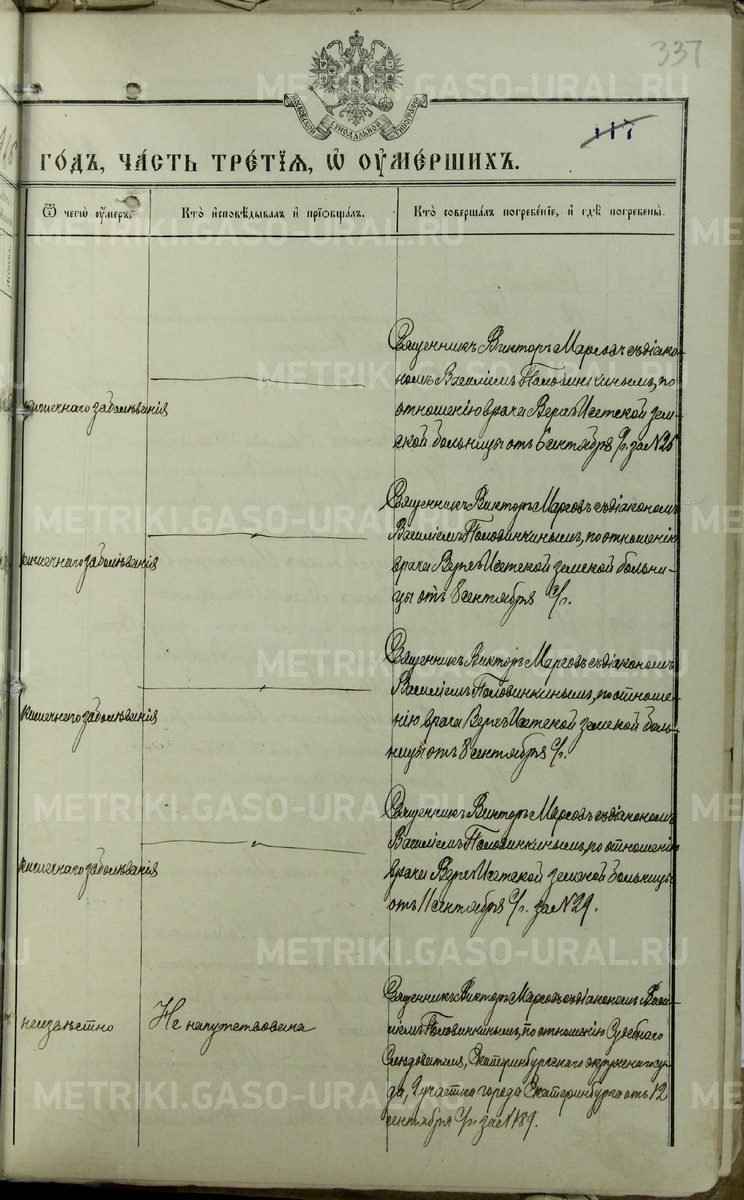 337
117
МОСКОВСКОЙ СѴНОДАЛЬНОЙ ТИПОГРАФІИ
ГОДЪ, ЧАСТЬ ТРЕТІЯ, Ѽ ОУМЕРШИХЪ.
Ѿ чегѡ оумеръ.
Кто исповѣдывалъ и прїобщалъ.
Кто совершалъ погребенїе, и гдѣ погребены.
кишечнаго заболѣванія
Священникъ Викторъ Маргсовъ съ діако-
номъ Василіемъ Половинкинымъ, по
отношенію врача Верхъ Исетской зем-
ской больницы отъ 6 сентября с/г. за № 26
кишечнаго заболѣванія
Священникъ Викторъ Маргсовъ съ діакономъ
Василіемъ Половинкинымъ, по отношенію
врача Верхъ Исетской земской больни-
цы отъ 8 сентября с/г.
кишечнаго заболѣванія
Священникъ Викторъ Маргсовъ съ діакономъ
Василіемъ Половинкинымъ, по отноше-
нію врача Верхъ Исетской земской боль-
ницы отъ 8 сентября с/г.
кишечнаго заболѣванія
Священникъ Викторъ Маргсовъ съ діакономъ
Василіемъ Половинкинымъ, по отношенію
врача Верхъ Исетской земской больницы
отъ 11 сентября с/г. за № 29.
неизвѣстно
Не напутствована
Священникъ Викторъ Маргсовъ съ діакономъ Васи-
ліемъ Половинкинымъ, по отношенію Судебнаго
Слѣдователя, Екатеринбургскаго окружнаго су-
да, 2 участка города Екатеринбурга отъ 12
сентября с/г за № 189.
METRIKI.GASO-URAL.RU